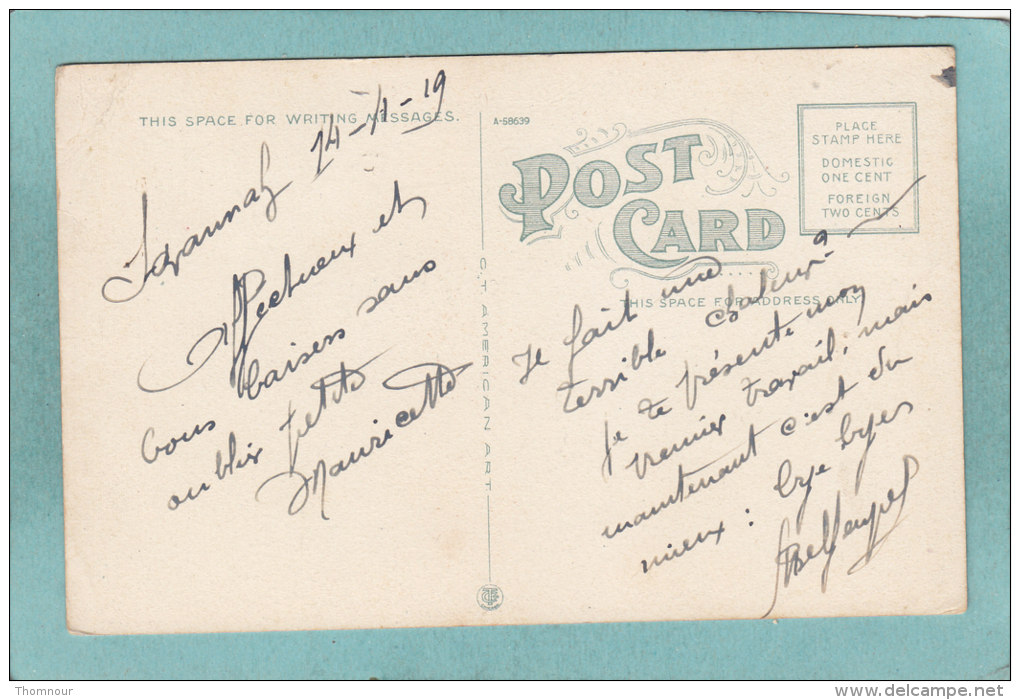 THIS SPACE FOR WRITING MESSAGES.
14-11-19
Affectueux et
bons baisers sans
oublier petite
Mauricette
C.T. AMERICAN ART
A-58639
POST
CARD
THIS SPACE FOR ADDRESS ONLY
PLACE
STAMP HERE
DOMESTIC
ONE CENT
FOREIGN
TWO CENTS
Je fait une
terrible chaleur
je te présente mon
premier travail, mais
maintenant c'est du
mieux : bye byes
Thomnour
http://www.delcampe.net